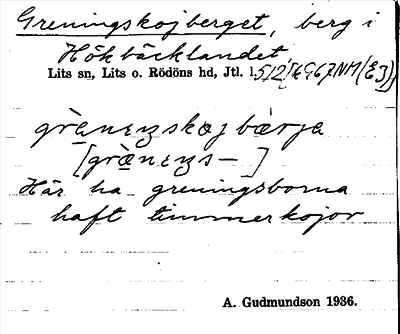 Greningskojberget, berg i
Hökbäcklandet
Lits sn, Lits o. Rödöns hd, Jtl. l.
grèneŋskojbærja
[grèneŋs— ]
Här ha greningsborna
haft timmerkojor
A. Gudmundson 1936.